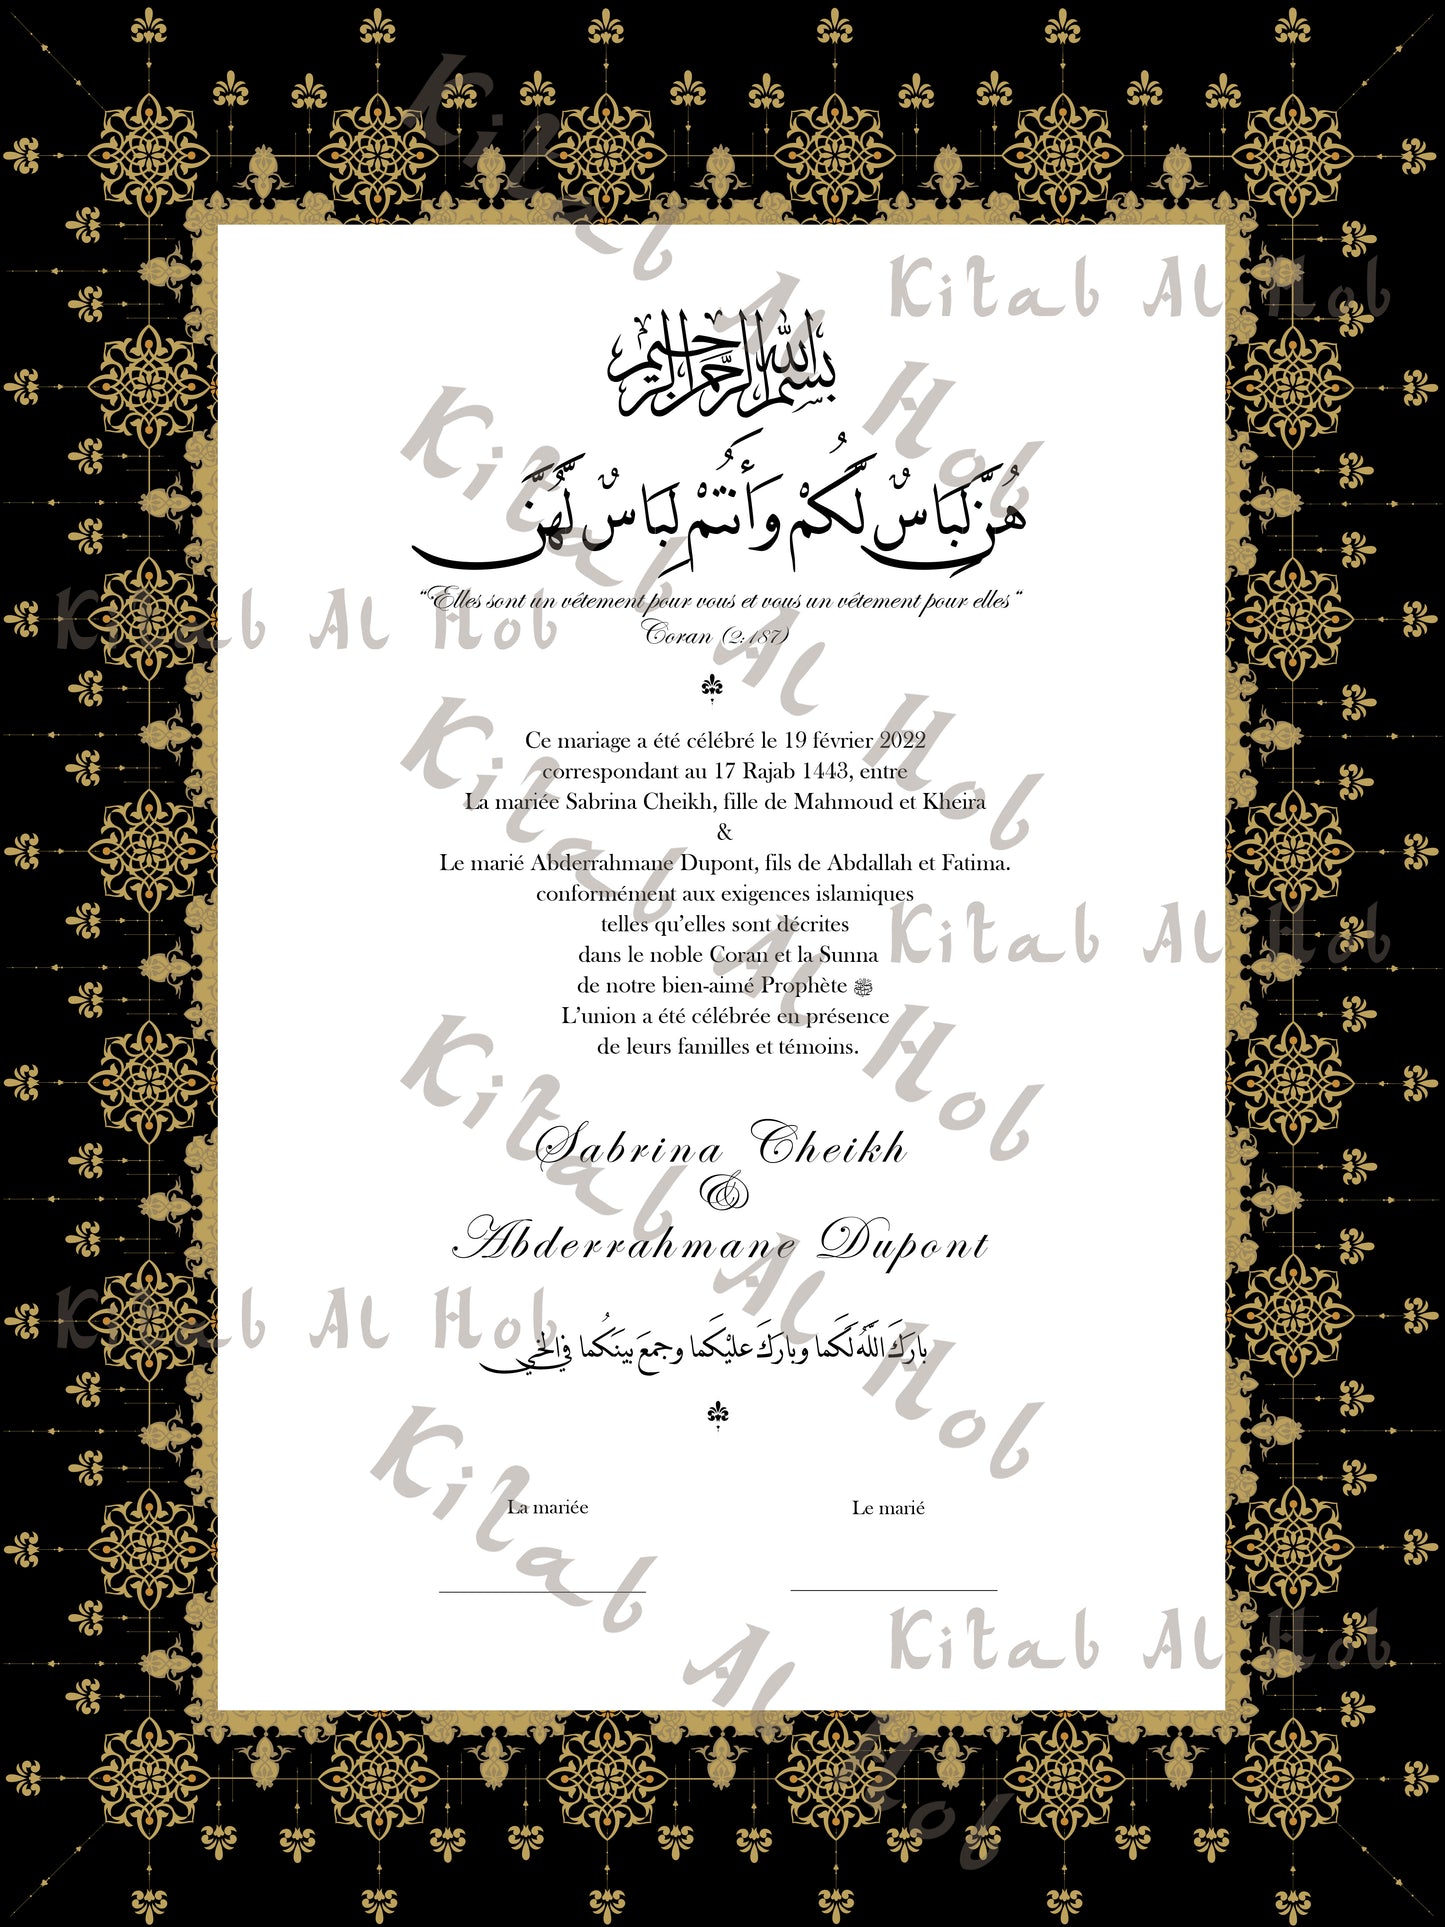 بسم الله الرحمن الرحيم
هُنَّ لِبَاسٌ لَّكُمْ وَأَنتُمْ لِبَاسٌ لَّهُنَّ
“Elles sont un vêtement pour vous et vous un vêtement pour elles“
Coran (2:187)
Ce mariage a été célébré le 19 février 2022
correspondant au 17 Rajab 1443, entre
La mariée Sabrina Cheikh, fille de Mahmoud et Kheira
&
Le marié Abderrahmane Dupont, fils de Abdallah et Fatima.
conformément aux exigences islamiques
telles qu’elles sont décrites
dans le noble Coran et la Sunna
de notre bien-aimé Prophète ﷺ
L’union a été célébrée en présence
de leurs familles et témoins.
Sabrina Cheikh
&
Abderrahmane Dupont
بارَكَ اللَّهُ لَكُما وبارَكَ عليْكَما وجمعَ بينَكُما في الخي
La mariée
Le marié
Kitab Al Hob
Kitab Al Hob
Kitab Al Hob
Kitab Al Hob
Kitab Al Hob
Kitab Al Hob
Kitab Al Hob
Kitab Al Hob
Kitab Al Hob
Kitab Al Hob